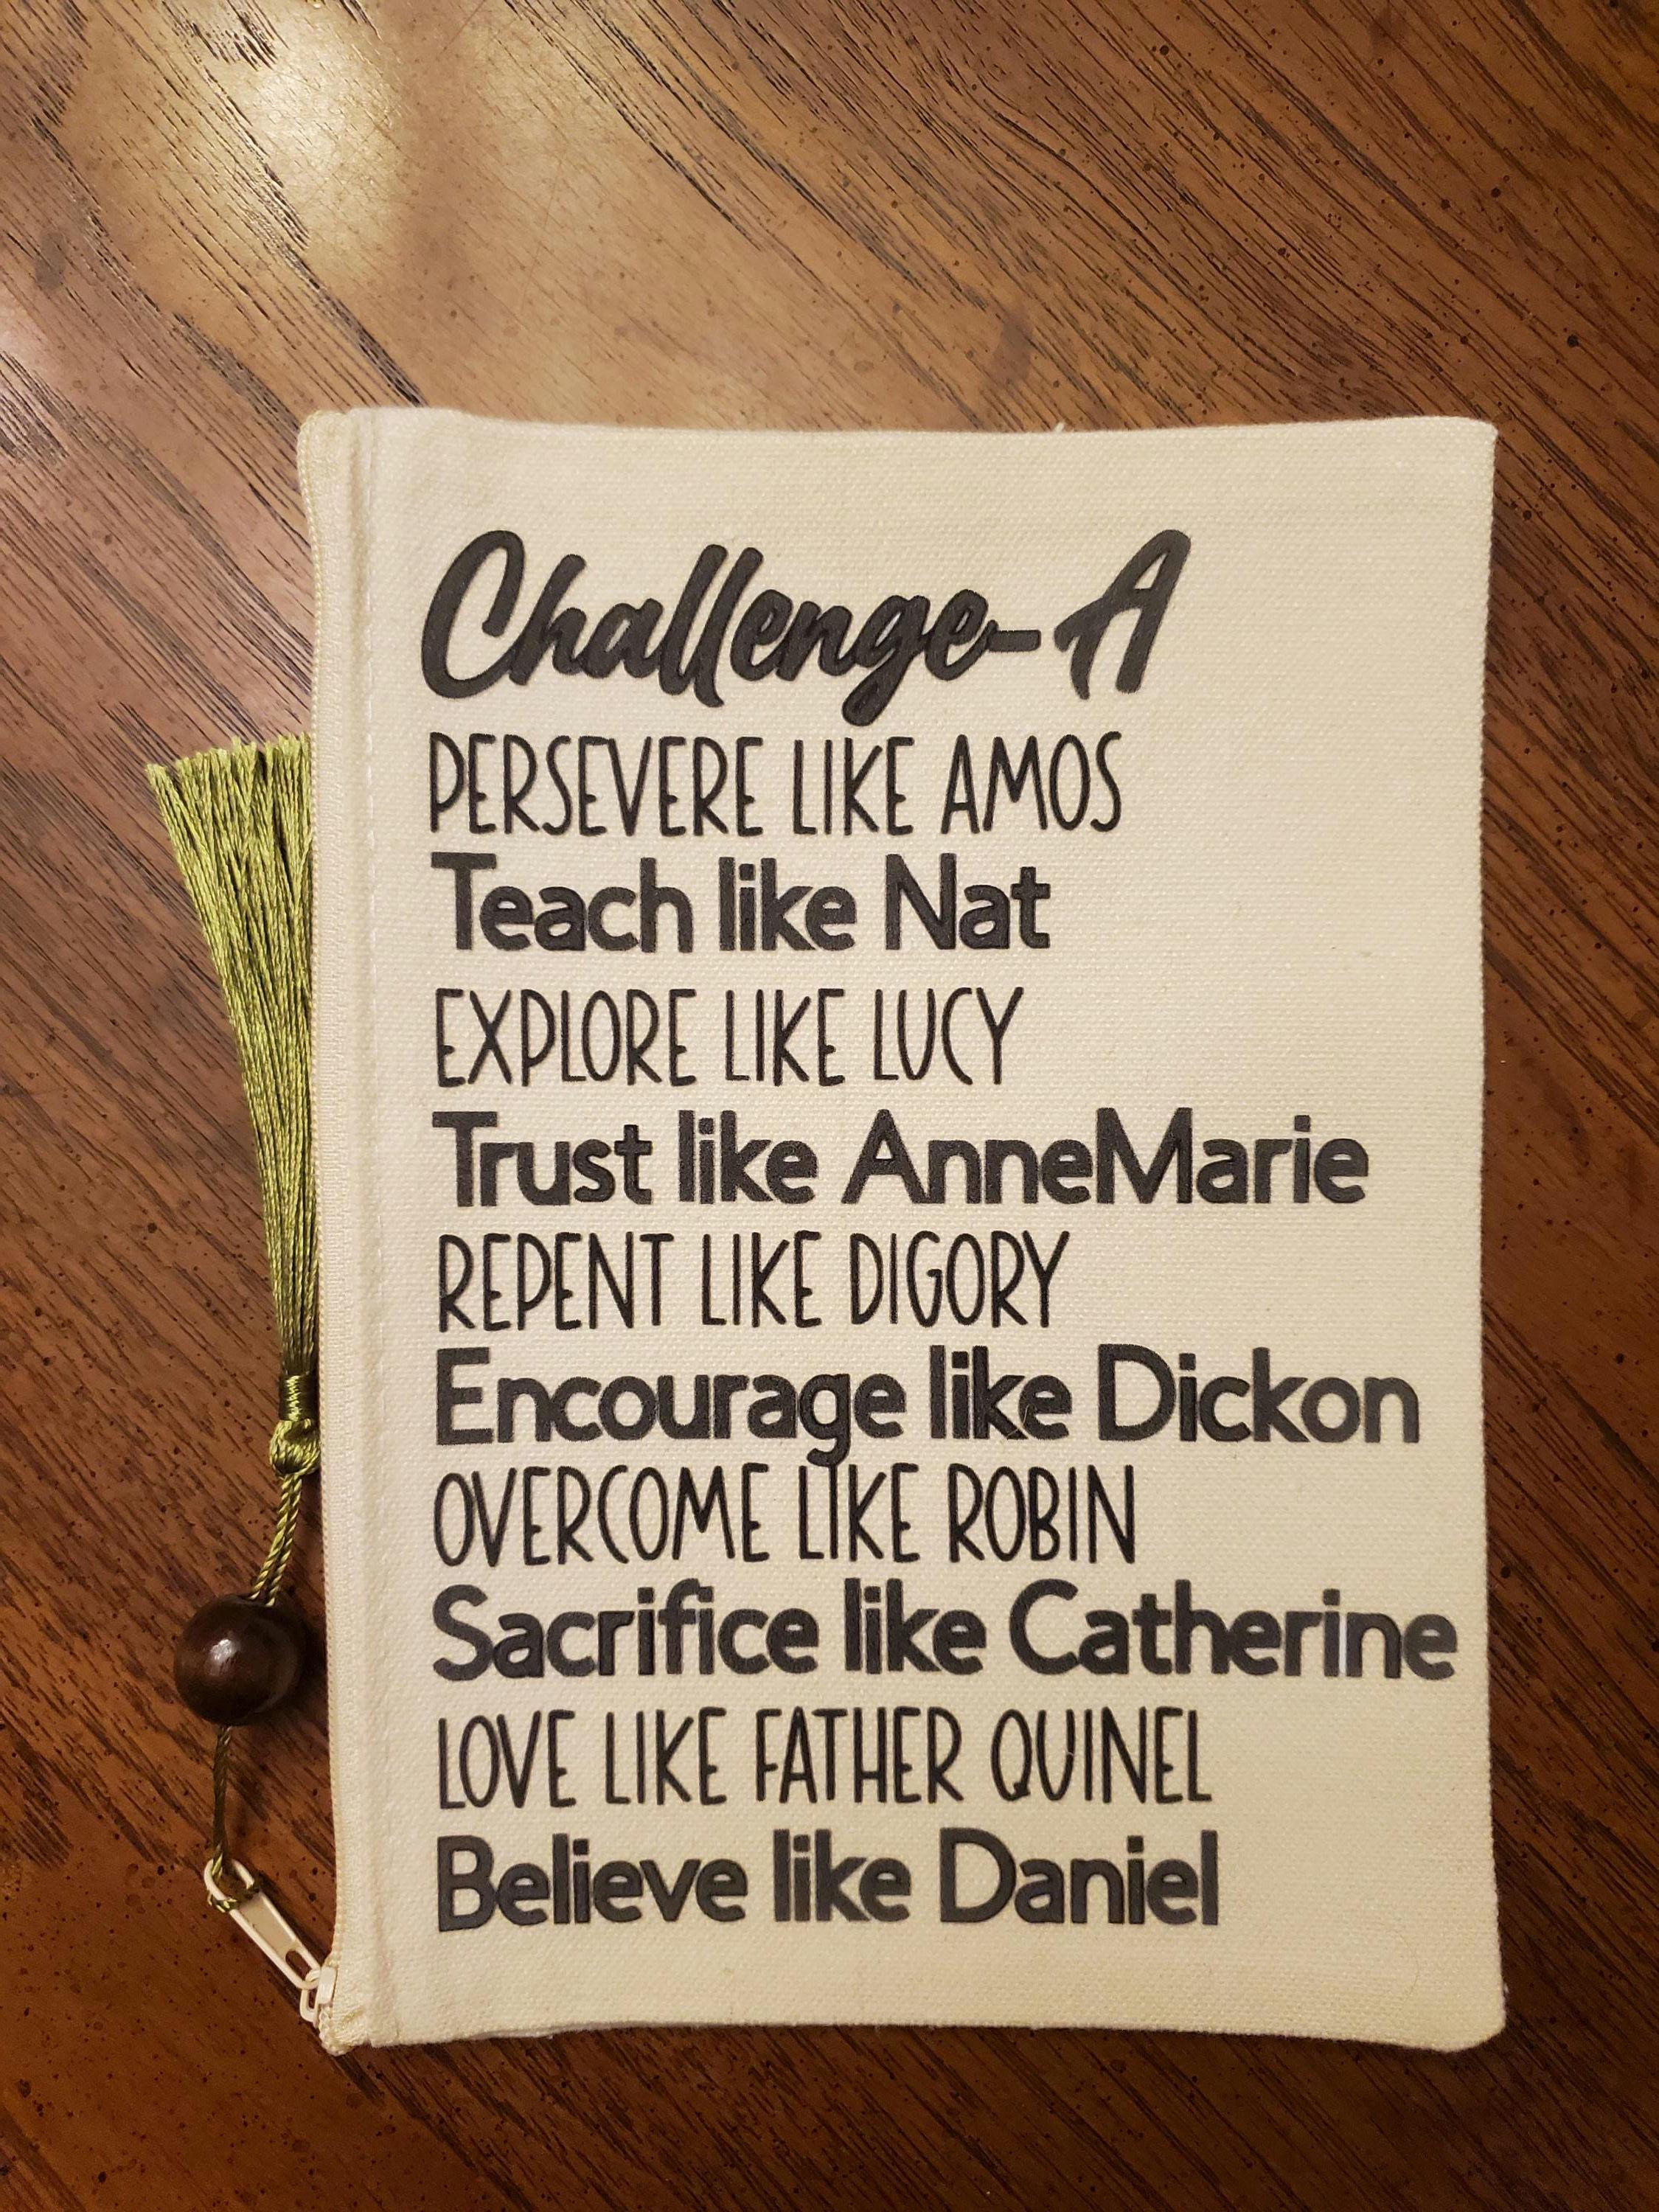 Challenge-A
PERSEVERE LIKE AMOS
Teach like Nat
EXPLORE LIKE LUCY
Trust like AnneMarie
REPENT LIKE DIGORY
Encourage like Dickon
OVERCOME LIKE ROBIN
Sacrifice like Catherine
LOVE LIKE FATHER QUINEL
Believe like Daniel